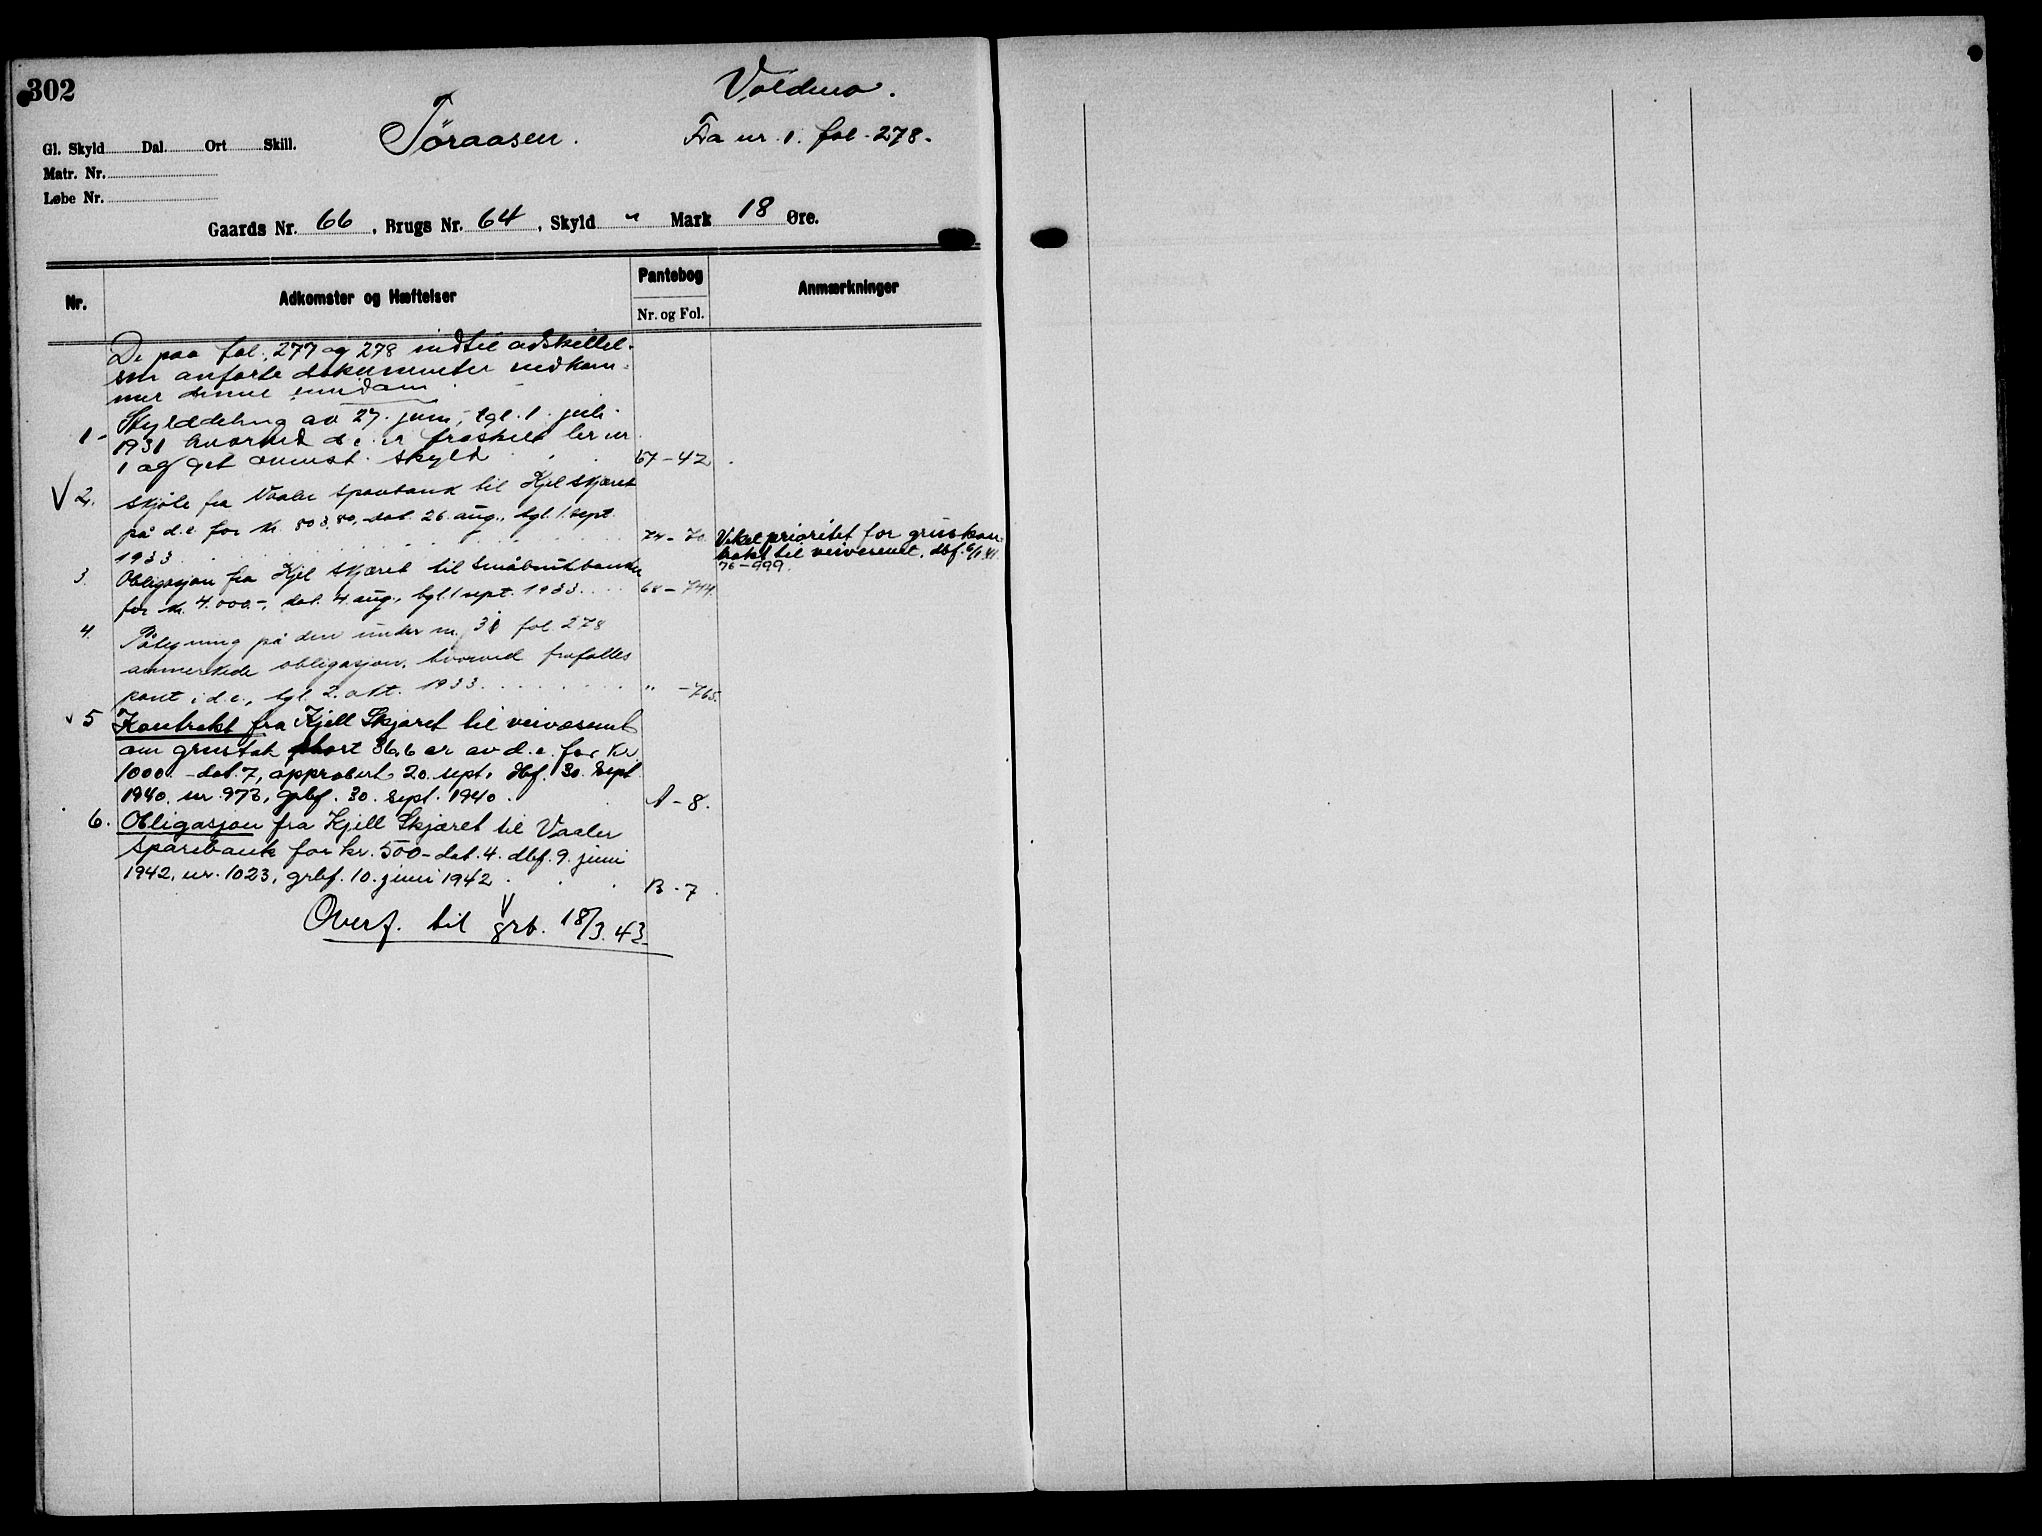 302
Voldmo.
Töraasen.
Fra nr. 1. fol. 278.
Gl. Skyld Dal. Ort Skill.
Matr. Nr.
Løbe Nr.
Gaards Nr. 66, Brugs Nr. 64, Skyld " Mark 18 Øre.
Nr.
Adkomster og Hæftelser
Pantebog
Nr. og Fol.
Anmærkninger
De paa fol. 277 og 278 indtil adskillel-
sen anførte dokumenter vedkom-
mer denne eiendom
1. Skylddeling av 27. juni, tgl. 1. juli
1931 hvorved d.e. er fraskilt br nr
1 og git anmst. skyld 67-42
2. Skjöte fra Vaaler sparebank til Kjel Skjæret
på d.e. for kr. 803,80, dat. 26. aug., tgl. 1. sept.
1933 74-70
3. Obligasjon fra Kjel Skjæret til Småbrukbanken
for kr. 4.000.-, dat. 4 aug., tgl. 1 sept. 1933 68-744.
Vikel prioritet for gruskon-
trakt til veivesenet, dbf. 6/1 41.
76-999.
4. Påtegning på den under nr. 31 fol. 278
anmerkede obligasjon, hvorved frafalles
pant i d.e., tgl. 2. okt. 1933 " -765.
5 Kontrakt fra Kjell Skjæret til veivæsenet
om grustak stort 36,6 ar av d.e. for kr
1000.- dat. 7, approbert 20. sept. dbf. 30. sept
1940. nr. 973, grbf. 30. sept. 1940. A-8.
6. Obligasjon fra Kjell Skjæret til Vaaler
sparebank for kr. 500- dat. 4. dbf. 9. juni
1942, nr. 1023, grbf. 10. juni 1942 B-7
Overf. til grb. 18/3. 43